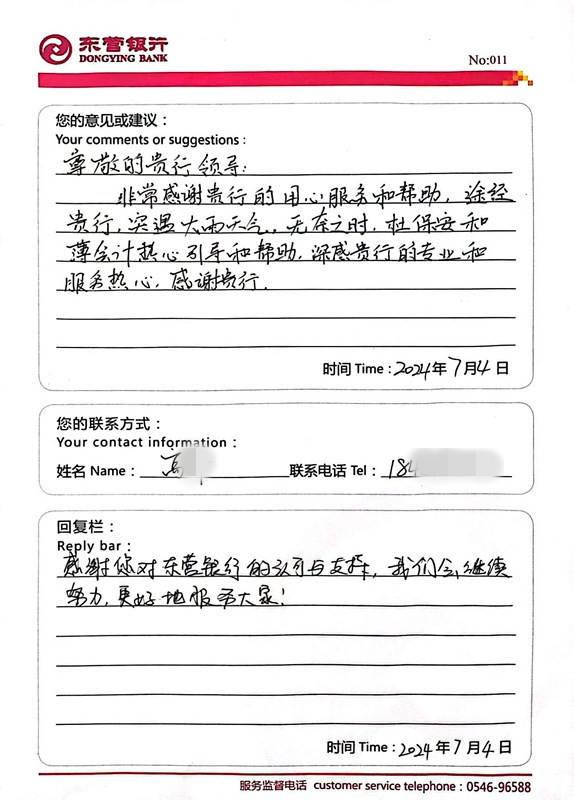 东营银行
DONGYING BANK
No:011
您的意见或建议：
Your comments or suggestions：
尊敬的贵行领导：
非常感谢贵行的用心服务和帮助，途经
贵行，突遇大雨天气，无奈之时，杜保安和
薄会计热心引导和帮助，深感贵行的专业和
服务热心，感谢贵行．
时间 Time：2024年7月4日
您的联系方式：
Your contact information：
姓名 Name：高 联系电话 Tel：184
回复栏：
Reply bar：
感谢你对东营银行的认可与支持，我们会继续
努力，更好地服务大家！
时间 Time：2024年7月4日
服务监督电话 customer service telephone：0546-96588